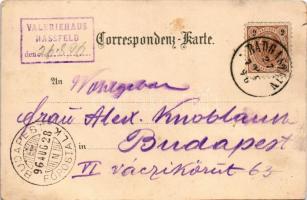 VALERIEHAUS
NASSFELD
den
Correspondenz-Karte.
2
An
Wohlgeboren
Frau Alex. Knoblauch
Budapest
VI váczikörút 63
BUDAPEST
96 AUG 28